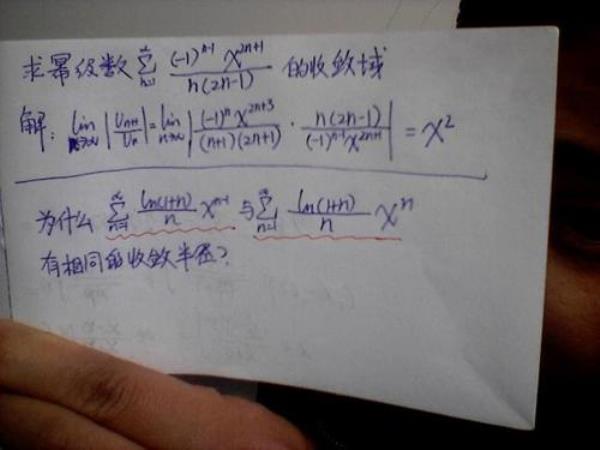 求幂级数 ∑_{n=1}^{∞} \frac{(-1)^{n-1} x^{2n+1}}{n(2n-1)} 的收敛域
解: \lim_{n→∞} |\frac{U_{n+1}}{U_n}| = \lim_{n→∞} |\frac{(-1)^n x^{2n+3}}{(n+1)(2n+1)} · \frac{n(2n-1)}{(-1)^{n-1} x^{2n+1}}| = x^2
为什么 ∑_{n=1}^{∞} \frac{ln(1+n)}{n} x^{n-1} 与 ∑_{n=1}^{∞} \frac{ln(1+n)}{n} x^n
有相同的收敛半径?